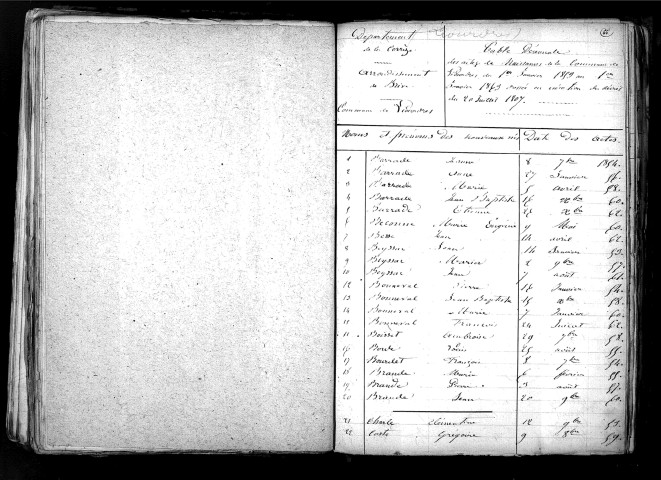 Département
de la Corrèze
arrondissement
de Brive
Commune de
Table Décennale
des actes de Naissances de la Commune de
du 1er Janvier 1853 au 1er
Janvier 1863 en exécution du décret
du 20 Juillet 1807.
Noms et prénoms des nouveaux nés Date des actes.
1 Barrade Jeanne 8 7bre 1854.
2 Barrade Anne 27 Janvier 56.
3 Barrade Marie 5 avril 58.
4 Barrade Jean Bptiste 16 xbre 60.
5 Barrade Etienne 25 xbre 62.
6 Marie 9 Mai 60.
7 Besse Jean 14 avril 62.
8 Beyssac Jean 14 Janvier 53.
9 Beyssac Marie 2 9bre 57.
10 Beyssac Jean 7 août
12 Bonneval Pierre 16 Janvier 54.
13 Bonneval Jean Baptiste 15 xbre 58.
14 Bonneval Marie 7 Janvier 60.
15 Bonneval François 24 Juillet 62.
Boisset Ambroise 29 7bre 58.
16 Louis 25 août 55.
17 Bourdet François 8 7bre 54.
18 Brande Marie 6 février 55.
19 Brande Pierre 3 août 57.
20 Brande Jean 20 9bre 60.
21 Charle Clémentine 12 9bre 53.
22 Coste Grégoire 9 8bre 59.